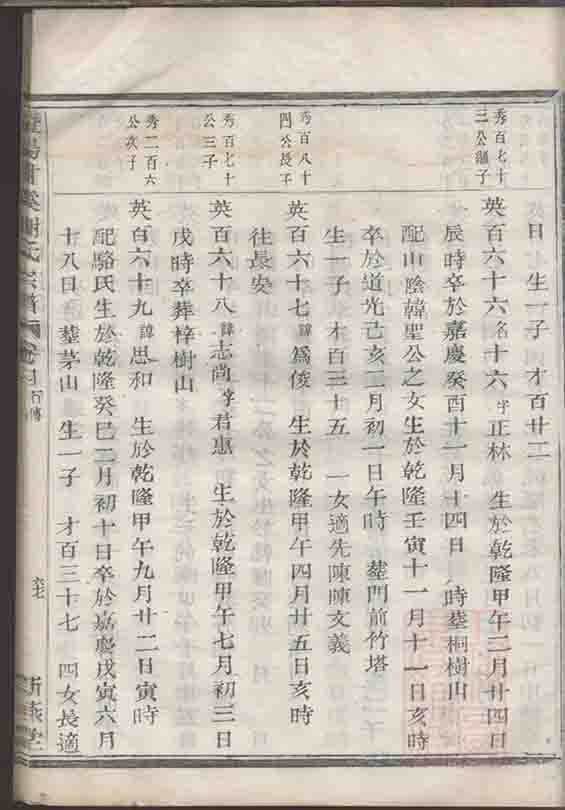 日 生一子 才百廿二
秀百七十
三公子
英百六十六名十六字正林 生於乾隆甲午二月廿四日
辰時卒於嘉慶癸酉十一月十四日 時塟桐樹山
配山陰韓聖公之女生於乾隆壬寅十一月十一日亥時
卒於道光己亥二月初一日午時 塟門前竹塔
生一子 木百三十五 一女適先陳陳文義
秀百八十
四公長子
英百六十七諱為俊 生於乾隆甲午四月廿五日亥時
往長安
秀百七十
公三子
英百六十八諱志尚字君惠 生於乾隆甲午七月初三日
戌時卒葬梓樹山
秀二百六
公次子
英百六十九諱思和 生於乾隆甲午九月廿二日寅時
配駱氏生於乾隆癸巳二月初十日卒於嘉慶戊寅六月
十八日 塟茅山 生一子 才百三十七 四女長適
氏宗譜